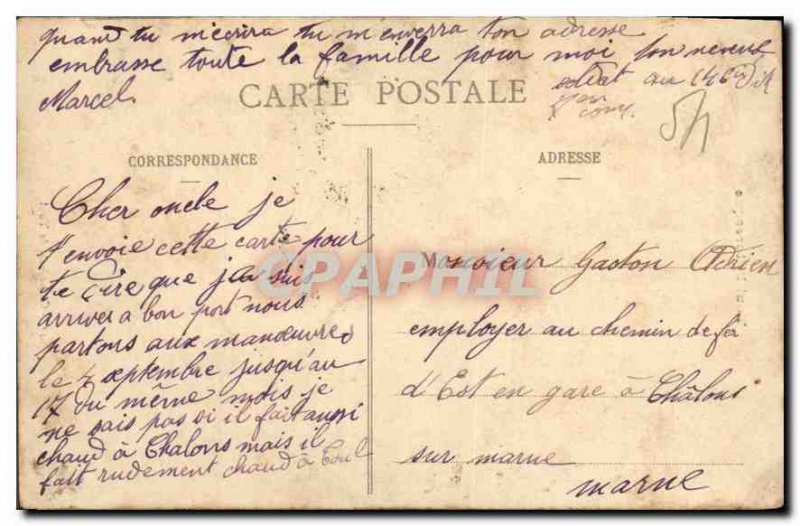 quand tu m'écrira tu m'enverra ton adresse
embrasse toute la famille pour moi ton neveux
Marcel soldat au 146e d'I
CARTE POSTALE
CORRESPONDANCE
Cher oncle je
t'envoie cette carte pour
te dire que j'ai suis
arriver a bon port nous
partons aux manœuvres
le 4 septembre jusqu'au
17 du même mois je
ne sais pas si il fait aussi
chaud à Chalons mais il
fait rudement chaud à Toul
ADRESSE
Monsieur Gaston
employer au chemin de fer
d'Est en gare à Châlons
sur marne
marne
CPAPHIL